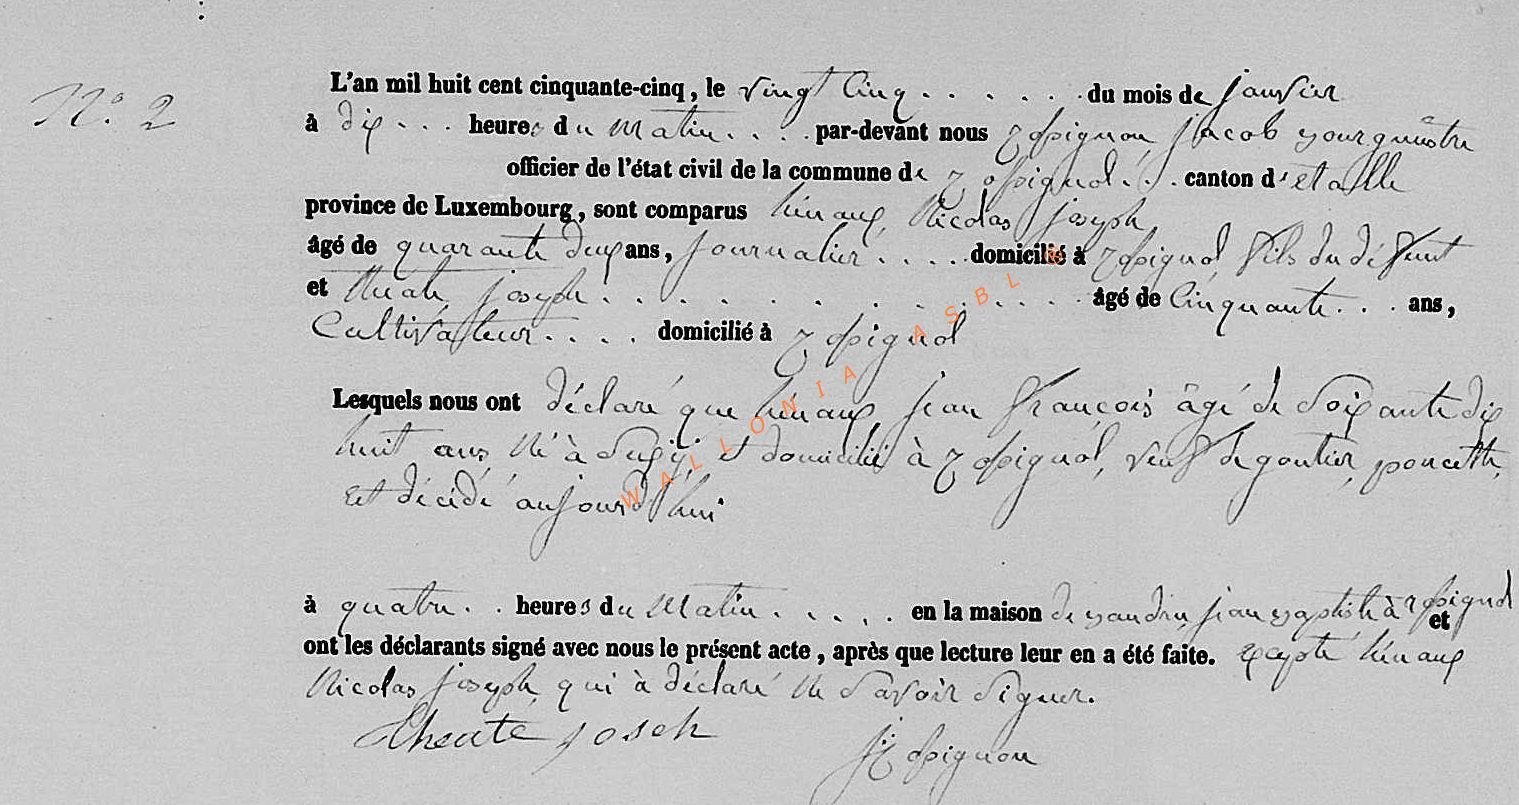 N° 2
L'an mil huit cent cinquante-cinq, le vingt cinq . . . . . . du mois de janvier
à dix . . . heures du matin . . . . par-devant nous Jacob
officier de l'état civil de la commune de . . . canton d'étalle
province de Luxembourg, sont comparus hénaux, Nicolas joseph,
âgé de quarante deux ans, journalier . . . . . domicilié à fils du défunt
et joseph . . . . . . . . . . . . âgé de Cinquante . . . ans,
Cultivateur . . . . domicilié à
Lesquels nous ont déclaré que hénaux jean françois âgé de soixante dix
huit ans né à et domicilié à veuf de poncette,
est décédé aujourd'hui
à quatre . . heures du matin . . . . . en la maison de jean baptiste à et
ont les déclarants signé avec nous le présent acte, après que lecture leur en a été faite. excepté hénaux
Nicolas joseph, qui à déclaré ne savoir signer.
WALLONIA ASBL ©